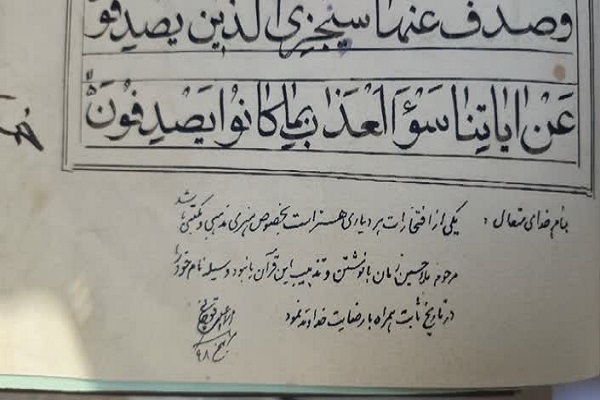 وَصَدَفَ عَنْهَا سَنَجْزِي الَّذِينَ يَصْدِفُو
عَنْ اٰيَاتِنَا سُوٓءَ الْعَذَابِ بِمَا كَانُوا يَصْدِفُونَ
بنام خدای متعال : یکی از افتخارات هر دیاری هنر است بخصوص هنری مذهبی و مکتبی باشد
مرحوم ملاحسین زمان با نوشتن و تذهیب این قرآن وسیله نام خود را
در تاریخ ثابت همراه با رضایت خداوند نمود